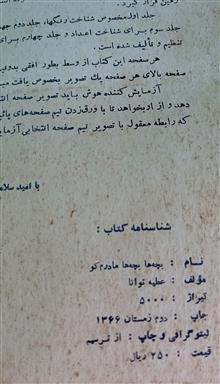 زمین قرار گیرد.
جلد اول مخصوص شناخت رنگها، جلد دوم جه
جلد سوم برای شناخت اعداد و جلد چهارم برای
تنظیم و تألیف شده است.
هر صفحه این کتاب از وسط بطور افقی بدونی
صفحه بالای هر صفحه یك تصویر بخصوص یافت می
آزمایش کننده هوش باید تصویر صفحه انت
دهد و از او بخواهد تا با ورق زدن نیم صفحه‌های پائی
که رابطه معقول با تصویر نیم صفحه انتخابی آزمای
با امید سلام
شناسنامه کتاب :
نام : بچه‌ها بچه‌ها مادرم کو
مؤلف : عطیه توانا
تیراژ : ۵۰۰۰
چاپ : دوم زمستان ۱۳۶۶
لیتوگرافی و چاپ : از ترسیم
قیمت : ۲۵۰ ریال